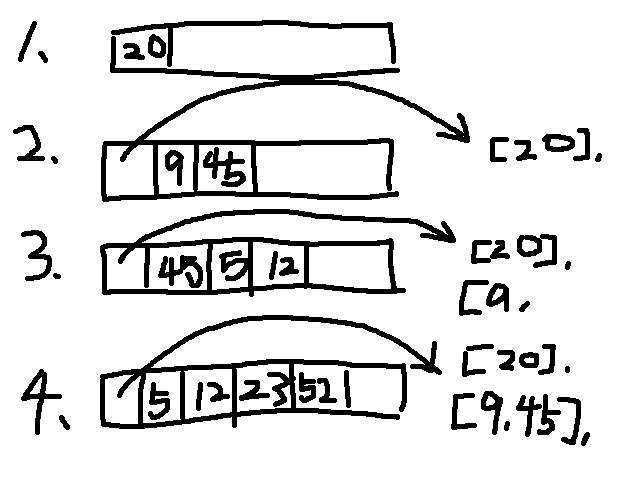 1、 20
2. 9 45 [20],
3. 45 5 12 [20],
[9,
4、 5 12 23 52 [20].
[9.45],